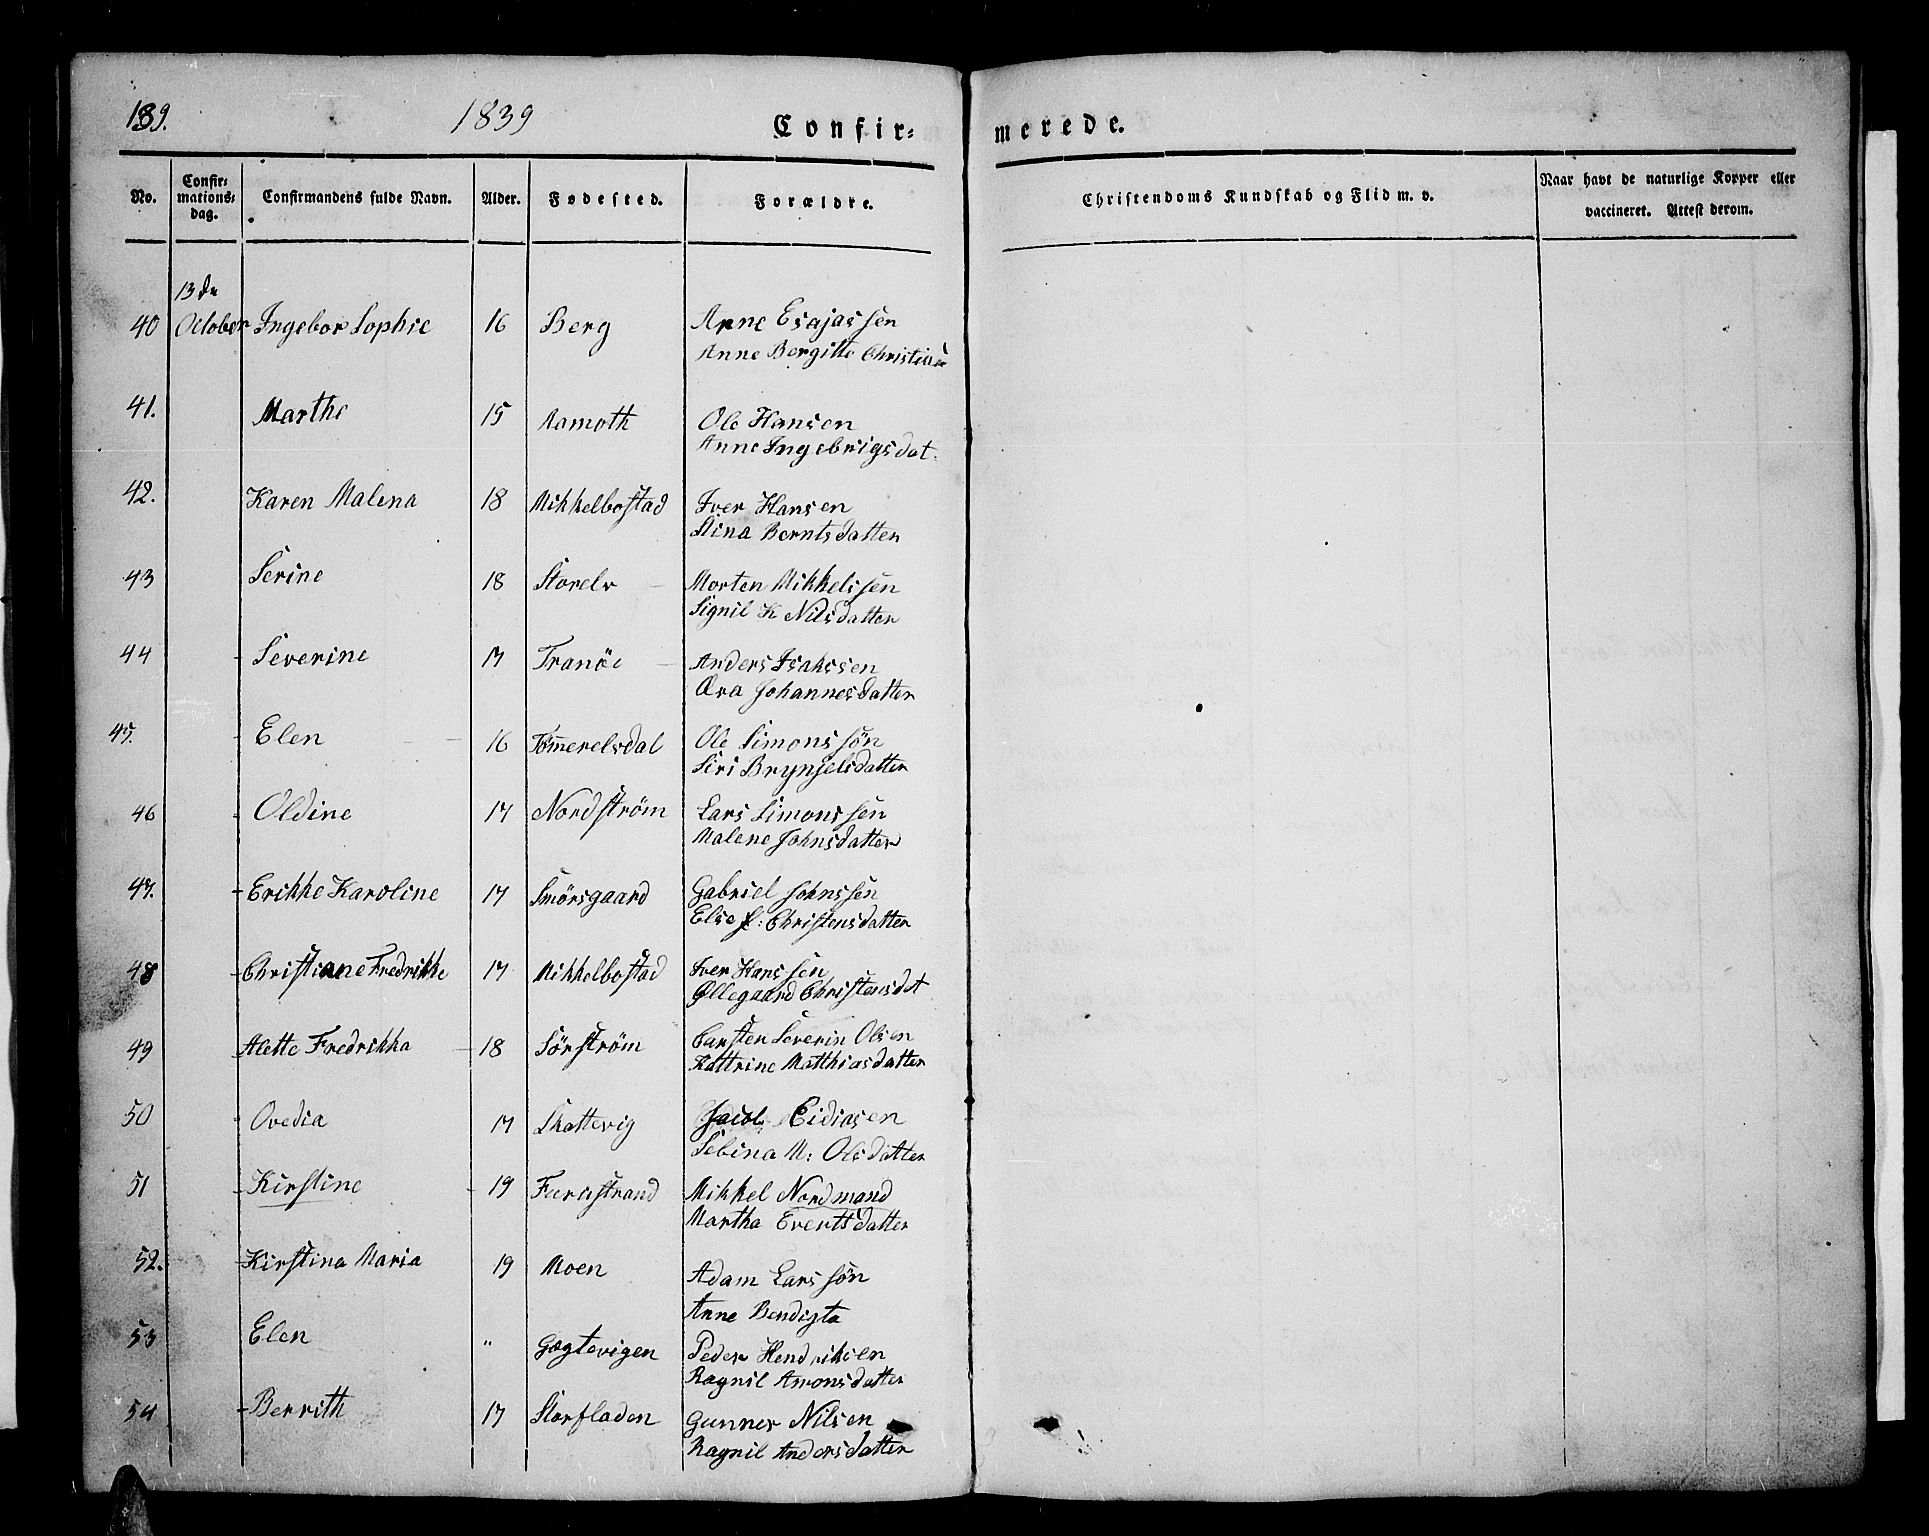 139. 1839 Confir= merede.
No. Confir= mations= dag. Confirmandens fulde Navn. Alder. Fødested. Forældre. Christendoms Kundskab og Flid m. v. Naar havt de naturlige Kopper eller vaccineret. Attest derom.
13de
40 October Ingebor Sophie 16 Berg Arne Esajassen
Anne Bergitte Christians
41. Marthe 15 Aamoth Ole Hansen
Anne Ingebrigsdat.
42. Karen Malena 18 Mikkelbostad Iver Hansen
Stina Berntsdatter
43 Serine 18 Storelv Morten Mikkelssen
Signil K Nilsdatter
44 Severine 17 Tranöe Anders Isakssen
Æva Johannesdatter
45. Elen 16 Tömerelsdal Ole Simonssön
Siri Brynjelsdatter
46 Oldine 17 Nordström Lars Simonssen
Malene Johnsdatter
47. Erikke Karoline 17 Smörsgaard Gabriel Johnssen
Else S: Christensdatter
48 Christiane Fredrikke 17 Mikkelbostad Iver Hanssen
Øllegaard Christensdat
49 Alette Fredrikka 18 Sörström Carsten Severin Olsen
Kattrine Matthiasdatter
50 Ovedia 17 Skattevig Jacob Eidissen
Sebina M: Olsdatter
51 Kirstine 19 Furustrand Mikkel Nordmand
Martha Evertsdatter
52. Kirstina Maria 19 Moen Adam Larssön
Anne Bendigta
53 Elen " Gagtevigen Peder Hendriksen
Ragnil Amonsdatter
54 Berrith 17 Storfladen Gunner Nilsen
Ragnil Andersdatter